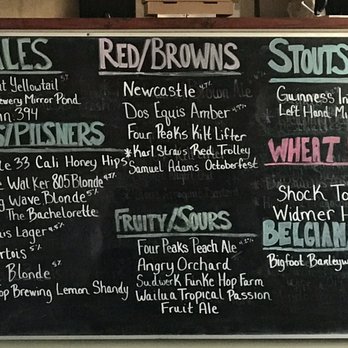 ALES
Yellowtail 5%
Brewery Mirror Pond
394
S/PILSNERS
33 Cali Honey Hips
Walker 805 Blonde
Wave Blonde
The Bachelorette
Lager
Blonde
Brewing Lemon Shandy
RED/BROWNS
Newcastle 4.7%
Dos Equis Amber 4.7%
Four Peaks Kilt Lifter
*Karl Straus Red Trolley
Samuel Adams Octoberfest
FRUITY/SOURS
Four Peaks Peach Ale
Angry Orchard
Sudwerk Funke Hop Farm
Wailua Tropical Passion
Fruit Ale
STOUTS
Guinness
Left Hand
WHEAT
Shock
Widmer
BELGIAN
Bigfoot Barleyw